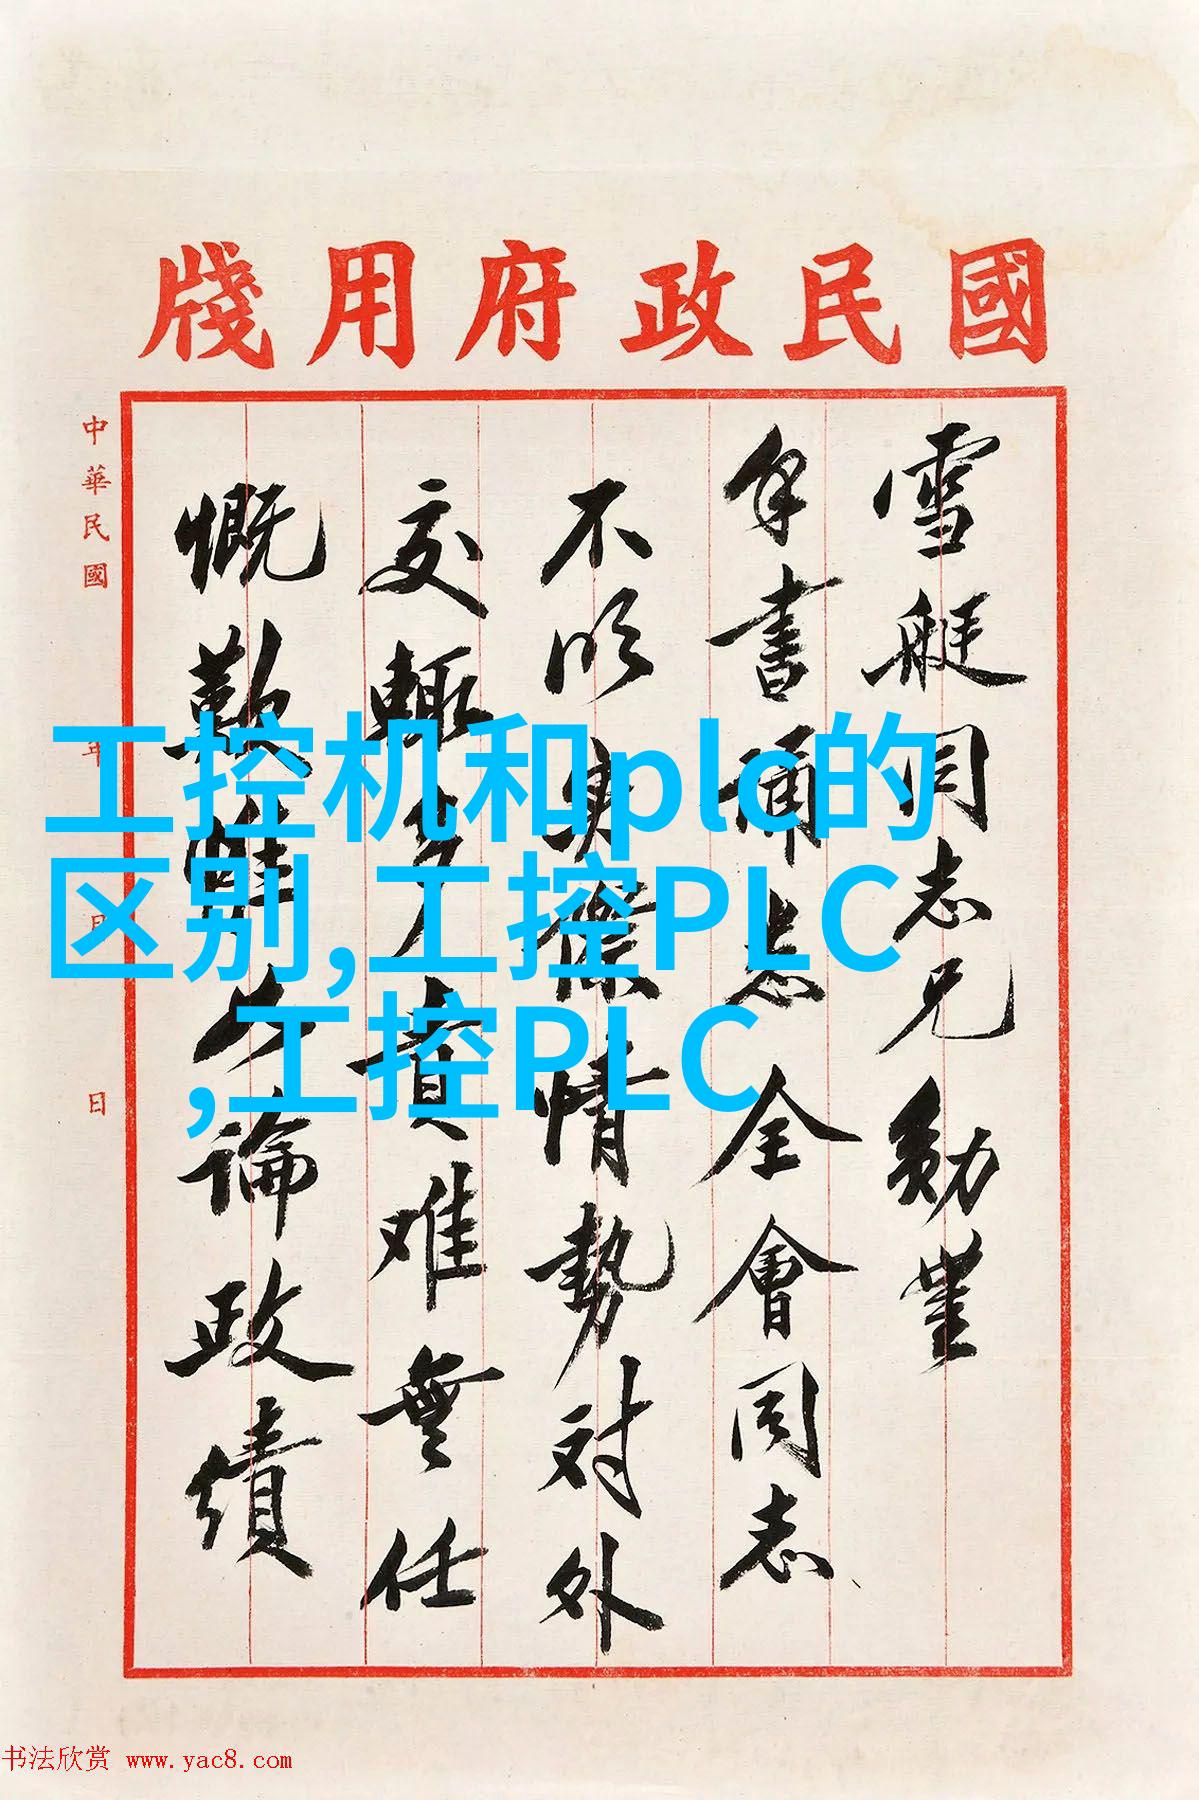 國民政府用牋
雪艇同志兄勋豐
手書誦悉全會同志
不明實際情勢对外
交輙多責难無任
慨歎惟以論政績
中華民國 年 月 日
工控机和plc的
区别,工控PLC
,工控PLC
书法欣赏 www.yac8.com